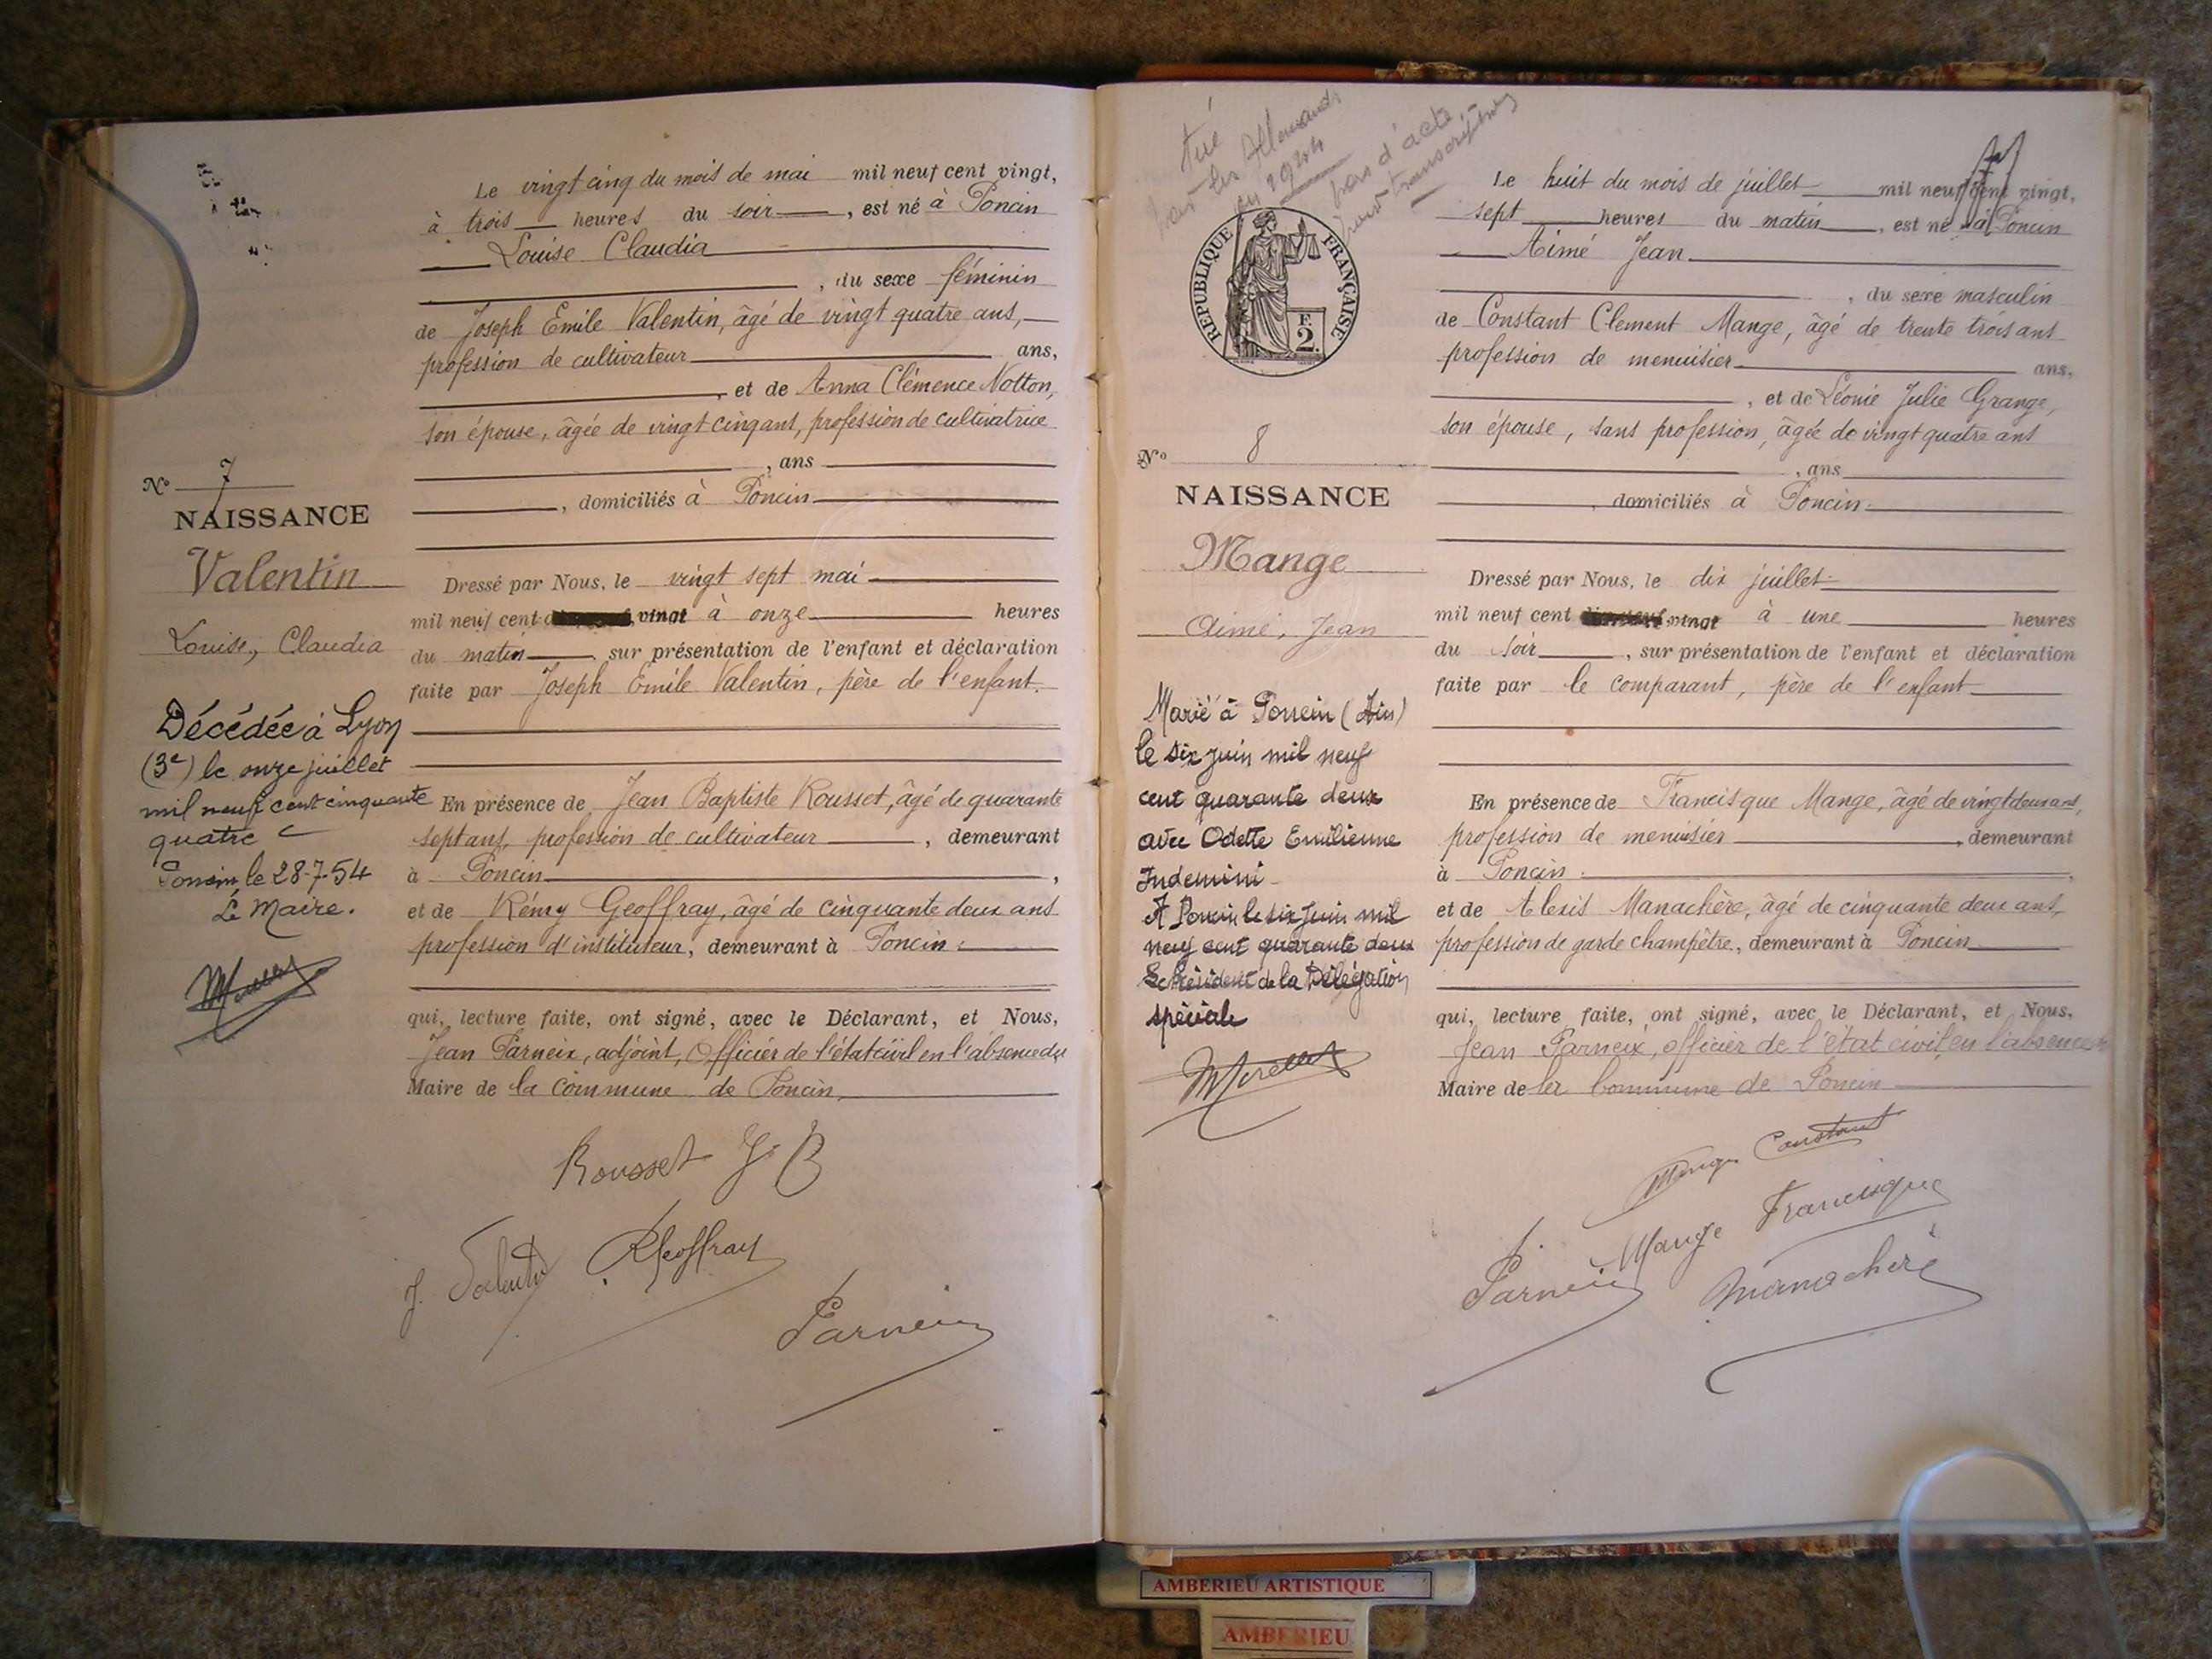 Le vingt cinq du mois de mai mil neuf cent vingt,
à trois heures du soir, est né à Poncin
Louise Claudia
, du sexe féminin
de Joseph Emile Valentin, âgé de vingt quatre ans,
profession de cultivateur ans,
, et de Anna Clémence Notton,
son épouse, âgée de vingt cinq ans, profession de cultivatrice
, ans
, domiciliés à Poncin
N° 7
NAISSANCE
Valentin
Louise, Claudia
Décédée à Lyon
(3e) le onze juillet
mil neuf cent cinquante
quatre
Poncin le 28-7-54
Le Maire.
Dressé par Nous, le vingt sept mai
mil neuf cent vingt à onze heures
du matin, sur présentation de l'enfant et déclaration
faite par Joseph Emile Valentin, père de l'enfant.
En présence de Jean Baptiste Rousset, âgé de quarante
sept ans, profession de cultivateur, demeurant
à Poncin,
et de Rémy Geoffray, âgé de cinquante deux ans
profession d'instituteur, demeurant à Poncin
qui, lecture faite, ont signé, avec le Déclarant, et Nous,
Jean Parneix, adjoint, Officier de l'état civil en l'absence du
Maire de la commune de Poncin,
Rousset J B
J. Valentin RGeoffray
Parneix
tué
par les Allemands
en 1944
pas d'acte
transcription
RÉPUBLIQUE FRANÇAISE
F.
2.
Le huit du mois de juillet mil neuf cent vingt,
sept heures du matin, est né à Poncin
Aimé Jean
, du sexe masculin
de Constant Clement Mange, âgé de trente trois ans
profession de menuisier ans,
, et de Léonie Julie Grange,
son épouse, sans profession, âgée de vingt quatre ans
, ans
, domiciliés à Poncin
N° 8
NAISSANCE
Mange
Aimé, Jean
Marié à Poncin (Ain)
le six juin mil neuf
cent quarante deux
avec Odette Emilienne
Indemini
A Poncin le six juin mil
neuf cent quarante deux
Le Président de la Délégation
spéciale
Dressé par Nous, le dix juillet
mil neuf cent vingt à une heures
du soir, sur présentation de l'enfant et déclaration
faite par le comparant, père de l'enfant
En présence de Francisque Mange, âgé de vingt deux ans,
profession de menuisier, demeurant
à Poncin
et de Alexis Manachère, âgé de cinquante deux ans,
profession de garde champêtre, demeurant à Poncin
qui, lecture faite, ont signé, avec le Déclarant, et Nous,
Jean Parneix, officier de l'état civil en l'absence
Maire de la Commune de Poncin
Mange Constant
Mange Francisque
Parneix Manachère
AMBERIEU ARTISTIQUE
AMBERIEU